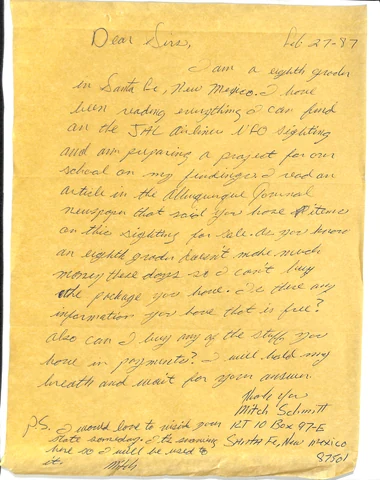 Dear Sirs, Feb 27-87
I am a eighth grader
in Santa Fe, New Mexico. I have
been reading everything I can find
on the JAL Airliner UFO sighting
and am preparing a project for our
school on my findings. I read an
article in the Albuquerque Journal
newspaper that said you have items
on this sighting for sale. As you know
an eighth grader doesn't make much
money these days so I can't buy
the package you have. Is there any
information you have that is free?
Also can I buy any of the stuff you
have in payments? I will hold my
breath and wait for your answer.
Thank You
Mitch Schmitt
RT 10 Box 97-E
Santa Fe, New Mexico
87501
P.S. I would love to visit your
state someday. Its snowing
here so I will be used to
it. Mitch